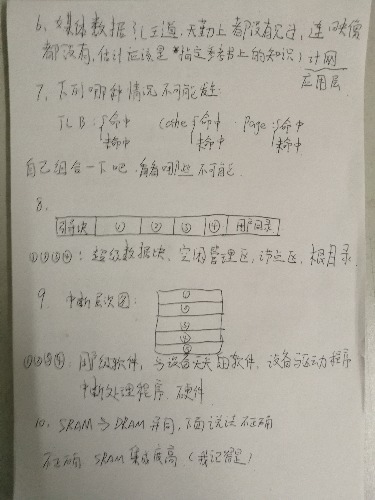 6、多媒体数据引王道、天勤上都没有见过，连映像
都没有，估计应该是*指定参考书上的知识）计网
应用层
7、下列哪种情况不可能发生：
TLB：{命中 Cache{命中 Page：{命中
未命中 未命中 未命中
自己组合一下吧，看看哪些不可能
8、
引导块 ① ② ③ ④ 用户目录
①②③④：超级数据块、空闲管理区、i节点区、根目录
9、中断层次图：
①
②
③
④
⑤
①②③④：用户级软件，与设备无关的软件，设备与驱动程序
中断处理程序、硬件
10、SRAM与DRAM异同，下面说法不正确
不正确：SRAM集成度高（我记得是）